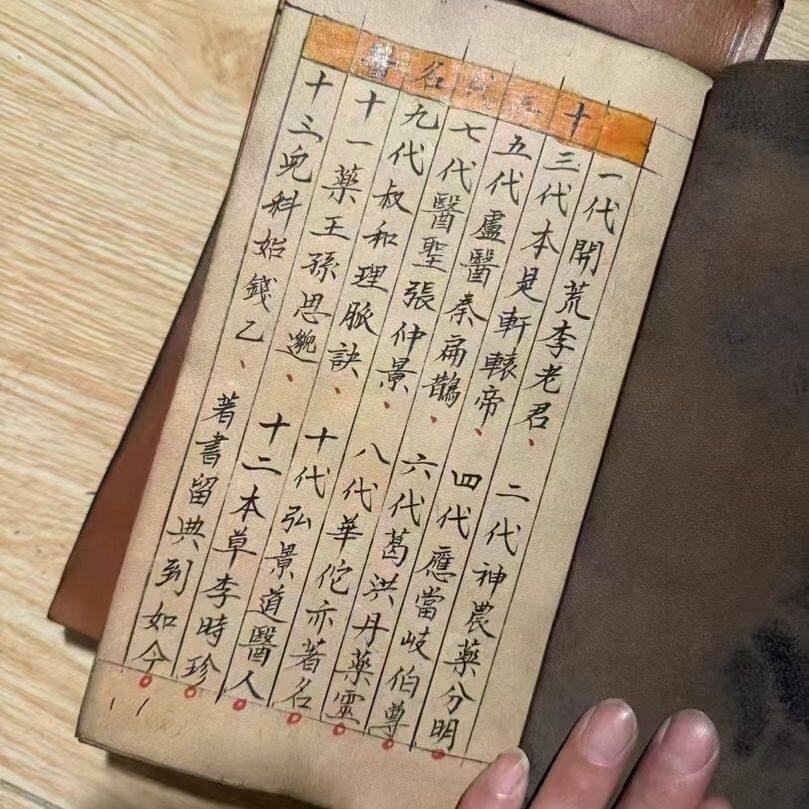 十三代名
一代開荒李老君、二代神農藥分明
三代本是軒轅帝、四代應當岐伯尊
五代盧醫秦扁鵲、六代葛洪丹藥靈
七代醫聖張仲景、八代華佗亦著名
九代叔和理脈訣、十代弘景道醫人
十一藥王孫思邈、十二本草李時珍
十三兒科始錢乙、著書留典到如今